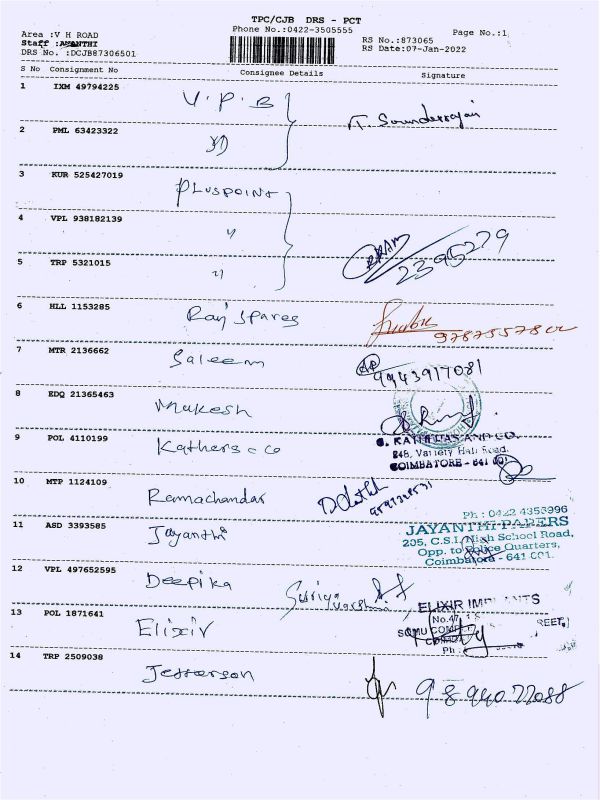 TPC/CJB DRS - PCT
Area :V H ROAD Phone No.:0422-3505555 Page No.:1
Staff : RS No.:873065
DRS No. :DCJB87306501 RS Date:07-Jan-2022
S No Consignment No Consignee Details Signature
1 IXM 49794225 V.P.B
T. Sounderrajan
2 PML 63423322
3 KUR 525427019 PLUSPOINT
4 VPL 938182139 "
5 TRP 5321015 "
2395279
6 HLL 1153285 Raj Spares
7 MTR 2136662 Saleem
9943917081
8 EDQ 21365463 Mukesh
9 POL 4110199 Kathers & co
S. KATHIDAS AND CO.
248, Variety Hall Road,
COIMBATORE - 641 001
10 MTP 1124109 Ramachandar
11 ASD 3393585 Jayanthi
Ph : 0422 4353996
JAYANTHI PAPERS
205, C.S.I. High School Road,
Opp. to Police Quarters,
Coimbatore - 641 001.
12 VPL 497652595 Deepika
13 POL 1871641 Elixir
ELIXIR IMPLANTS
No.47
REET,
Ph :
14 TRP 2509038 Jefferson
9894072088